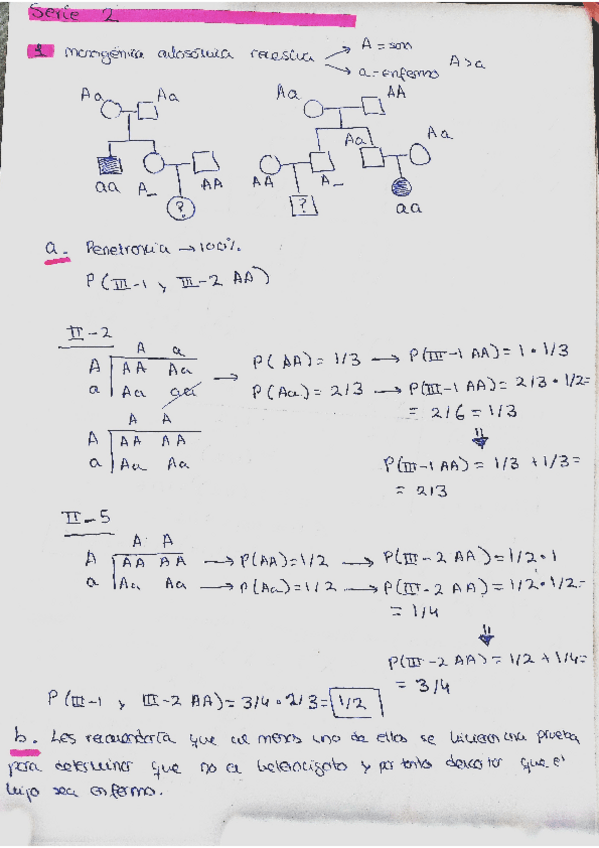 Serie 2
1 monogénica autosómica recesiva → A = sano
→ a = enfermo
A > a
Aa Aa Aa AA
Aa Aa
aa A_ AA AA A_
? ? aa
a. Penetrancia → 100%
P(III-1 y III-2 AA)
II-2
A a
A AA Aa → P(AA) = 1/3 → P(III-1 AA) = 1 · 1/3
a Aa aa P(Aa) = 2/3 → P(III-1 AA) = 2/3 · 1/2 =
= 2/6 = 1/3
A A
A AA AA
a Aa Aa
P(III-1 AA) = 1/3 + 1/3 =
= 2/3
II-5
A A
A AA AA → P(AA) = 1/2 → P(III-2 AA) = 1/2 · 1
a Aa Aa → P(Aa) = 1/2 → P(III-2 AA) = 1/2 · 1/2 =
= 1/4
P(III-2 AA) = 1/2 + 1/4 =
= 3/4
P(III-1 y III-2 AA) = 3/4 · 2/3 = 1/2
b. Les recomendaría que al menos uno de ellos se hiciera una prueba
para determinar que no es heterocigoto y por tanto descartar que el
hijo sea enfermo.